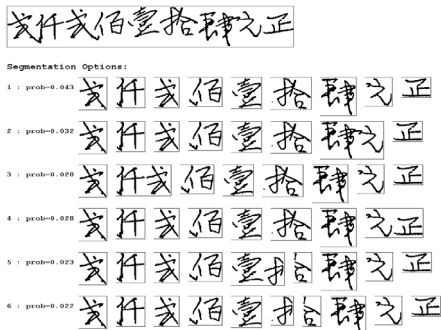 弍仟弍佰壹拾肆元正
Segmentation Options:
1 : prob=0.043 弍 仟 弍 佰 壹 拾 肆 元 正
2 : prob=0.032 弍 仟 弍 佰 壹 拾 肆元 正
3 : prob=0.028 弍 仟弍 佰 壹 拾 肆 元 正
4 : prob=0.028 弍 仟 弍 佰 壹 拾 肆 元正
5 : prob=0.023 弍 仟 弍 佰 壹拾 肆 元 正
6 : prob=0.022 弍 仟 弍 佰 壹 拾 肆 元 正